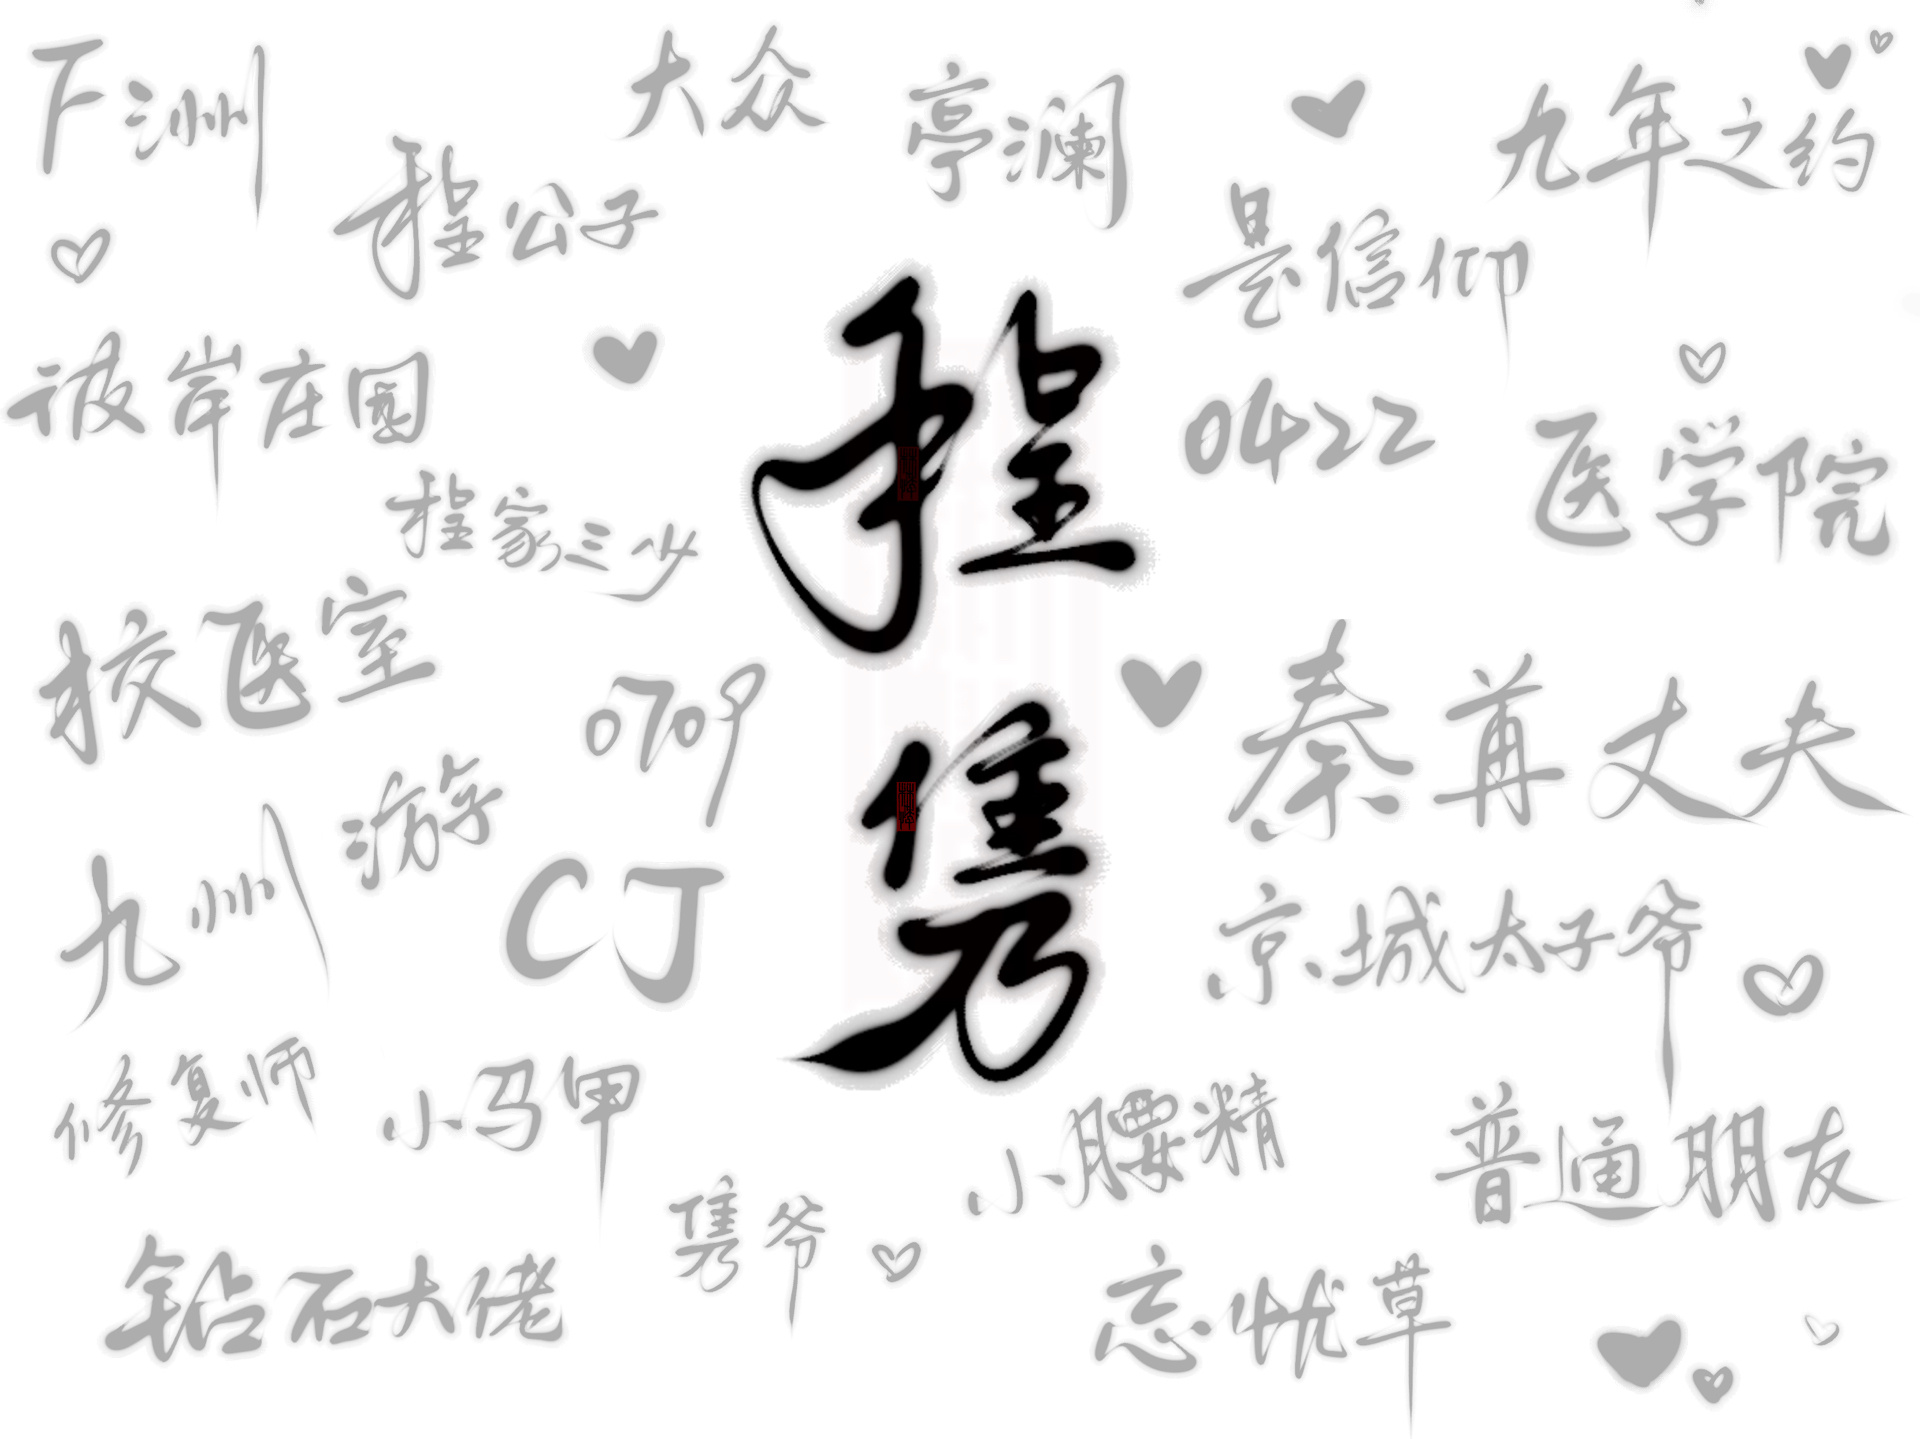 下洲
大众
亭澜
九年之约
程公子
是信仰
彼岸庄园
0422
医学院
程家三少
程隽
校医室
0709
秦苒丈夫
九州游
CJ
京城太子爷
修复师
小马甲
小腰精
普通朋友
隽爷
钻石大佬
忘忧草